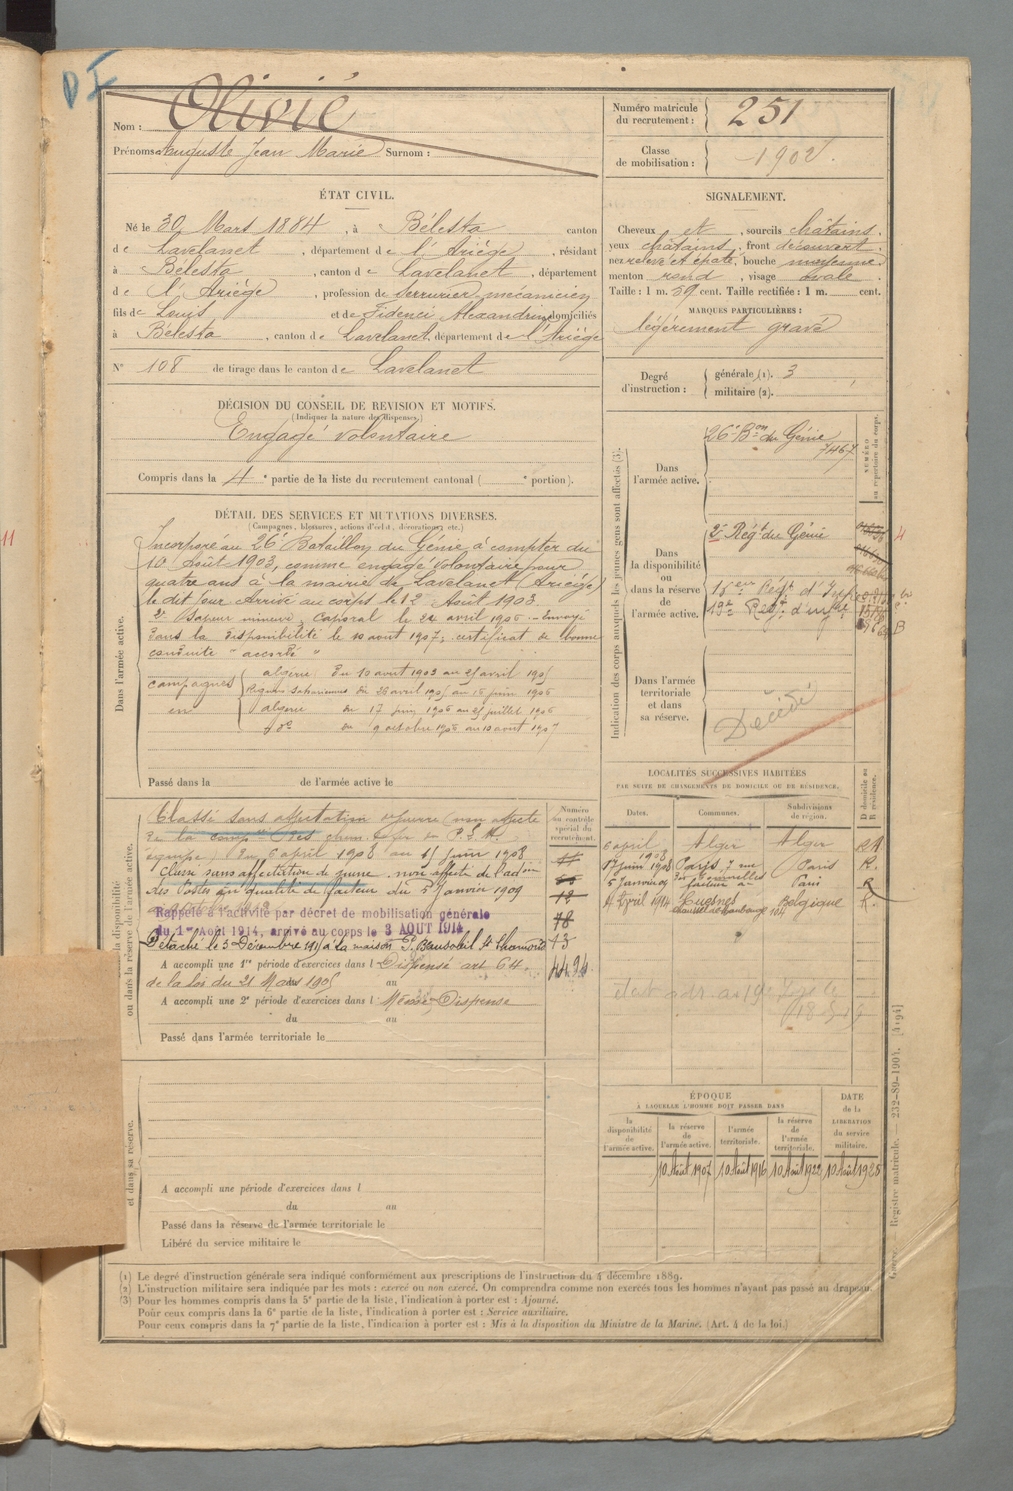 Nom : Olivié
Prénoms : Auguste Jean Marie Surnom :
Numéro matricule du recrutement : 251
Classe de mobilisation : 1902.
ÉTAT CIVIL.
Né le 30 Mars 1884, à Bélesta canton
de Lavelanet, département de l'Ariège, résidant
à Bélesta, canton de Lavelanet, département
de l'Ariège, profession de serrurier mécanicien
fils de Louis et de Fidenci Alexandrine domiciliés
à Bélesta, canton de Lavelanet, département de l'Ariège
N° 108 de tirage dans le canton de Lavelanet
SIGNALEMENT.
Cheveux et, sourcils châtains.
yeux châtains, front découvert.
nez relevé et épaté, bouche moyenne
menton rond, visage ovale.
Taille : 1 m. 59 cent. Taille rectifiée : 1 m. cent.
MARQUES PARTICULIÈRES :
légèrement gravé
Degré d'instruction :
générale (1). 3
militaire (2).
DÉCISION DU CONSEIL DE REVISION ET MOTIFS.
(Indiquez la nature des dispenses.)
Engagé volontaire
Compris dans la 4e partie de la liste du recrutement cantonal ( e portion).
DÉTAIL DES SERVICES ET MUTATIONS DIVERSES.
(Campagnes, blessures, actions d'éclat, décorations, etc.)
Dans l'armée active.
Incorporé au 26e Bataillon du Génie à compter du
10 Août 1903, comme engagé volontaire pour
quatre ans à la mairie de Lavelanet (Ariège)
le dit jour Arrivé au corps le 12 Août 1903.
2e Sapeur mineur, caporal le avril 1905 - Envoyé
dans la disponibilité le 10 août 1907; certificat de bonne
conduite "accordé"
Campagnes en
algérie du 10 août 1903 au 25 avril 1905
Régions Sahariennes du 26 avril 1905 au 16 juin 1906
algérie du 17 juin 1906 au 25 juillet 1906
do du 9 octobre 1906 au 10 août 1907
Passé dans la de l'armée active le
Indication des corps auxquels les jeunes gens sont affectés (3).
NUMÉRO au répertoire du corps.
Dans l'armée active.
26e Bon du Génie
7467
Dans la disponibilité ou dans la réserve de l'armée active.
2e Régt du Génie
Régt d'Infie
Régt d'infie
Dans l'armée territoriale et dans sa réserve.
Décédé
dans la disponibilité ou dans la réserve de l'armée active.
Numéro au contrôle spécial du recrutement.
Classé sans affectation
équipe) Du 6 avril 1908 au 15 juin 1908
Classé sans affectation de guerre. non affecté de l'adon
des Postes en qualité de facteur du 5 Janvier 1909
Rappelé à l'activité par décret de mobilisation générale
du 1er Août 1914, arrivé au corps le 3 AOUT 1914
Détaché le 3 Décembre 1915 à la maison St Chamond
A accompli une 1re période d'exercices dans l Dispensé art 64.
de la loi du 21 Mars 1905 au
A accompli une 2e période d'exercices dans l Dispense
du au
Passé dans l'armée territoriale le
LOCALITÉS SUCCESSIVES HABITÉES
PAR SUITE DE CHANGEMENTS DE DOMICILE OU DE RÉSIDENCE.
Dates. Communes. Subdivisions de région. D domicile ou R résidence.
6 avril 1908 Alger Alger
15 juin 1908 Paris, 7 rue Paris R.
5 Janvier 09 facteur à Paris R
4 Avril 1914 Belgique R.
et dans sa réserve.
A accompli une période d'exercices dans l
du au
Passé dans la réserve de l'armée territoriale le
Libéré du service militaire le
ÉPOQUE
À LAQUELLE L'HOMME DOIT PASSER DANS
la disponibilité de l'armée active.
la réserve de l'armée active.
l'armée territoriale.
la réserve de l'armée territoriale.
DATE de la LIBÉRATION du service militaire.
10 Août 1907 10 Août 1916 10 Août 1922 10 Août 1928
Registre matricule. — 232-89-1904. [4194]
(1) Le degré d'instruction générale sera indiqué conformément aux prescriptions de l'instruction du 4 décembre 1889.
(2) L'instruction militaire sera indiquée par les mots : exercé ou non exercé. On comprendra comme non exercés tous les hommes n'ayant pas passé au drapeau.
(3) Pour les hommes compris dans la 5e partie de la liste, l'indication à porter est : Ajourné.
Pour ceux compris dans la 6e partie de la liste, l'indication à porter est : Service auxiliaire.
Pour ceux compris dans la 7e partie de la liste, l'indication à porter est : Mis à la disposition du Ministre de la Marine. (Art. 4 de la loi.)